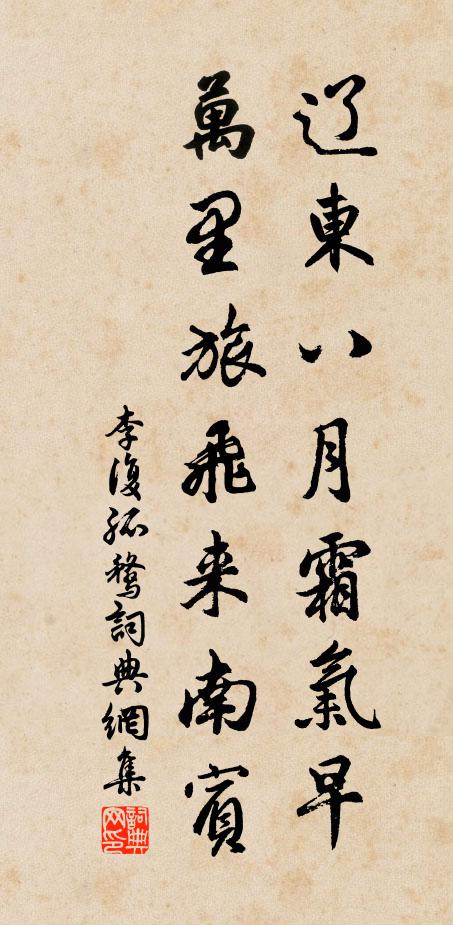 辽東八月霜氣早
萬里旅飛来南賓
李復孤鶩詞典網集
詞典網印